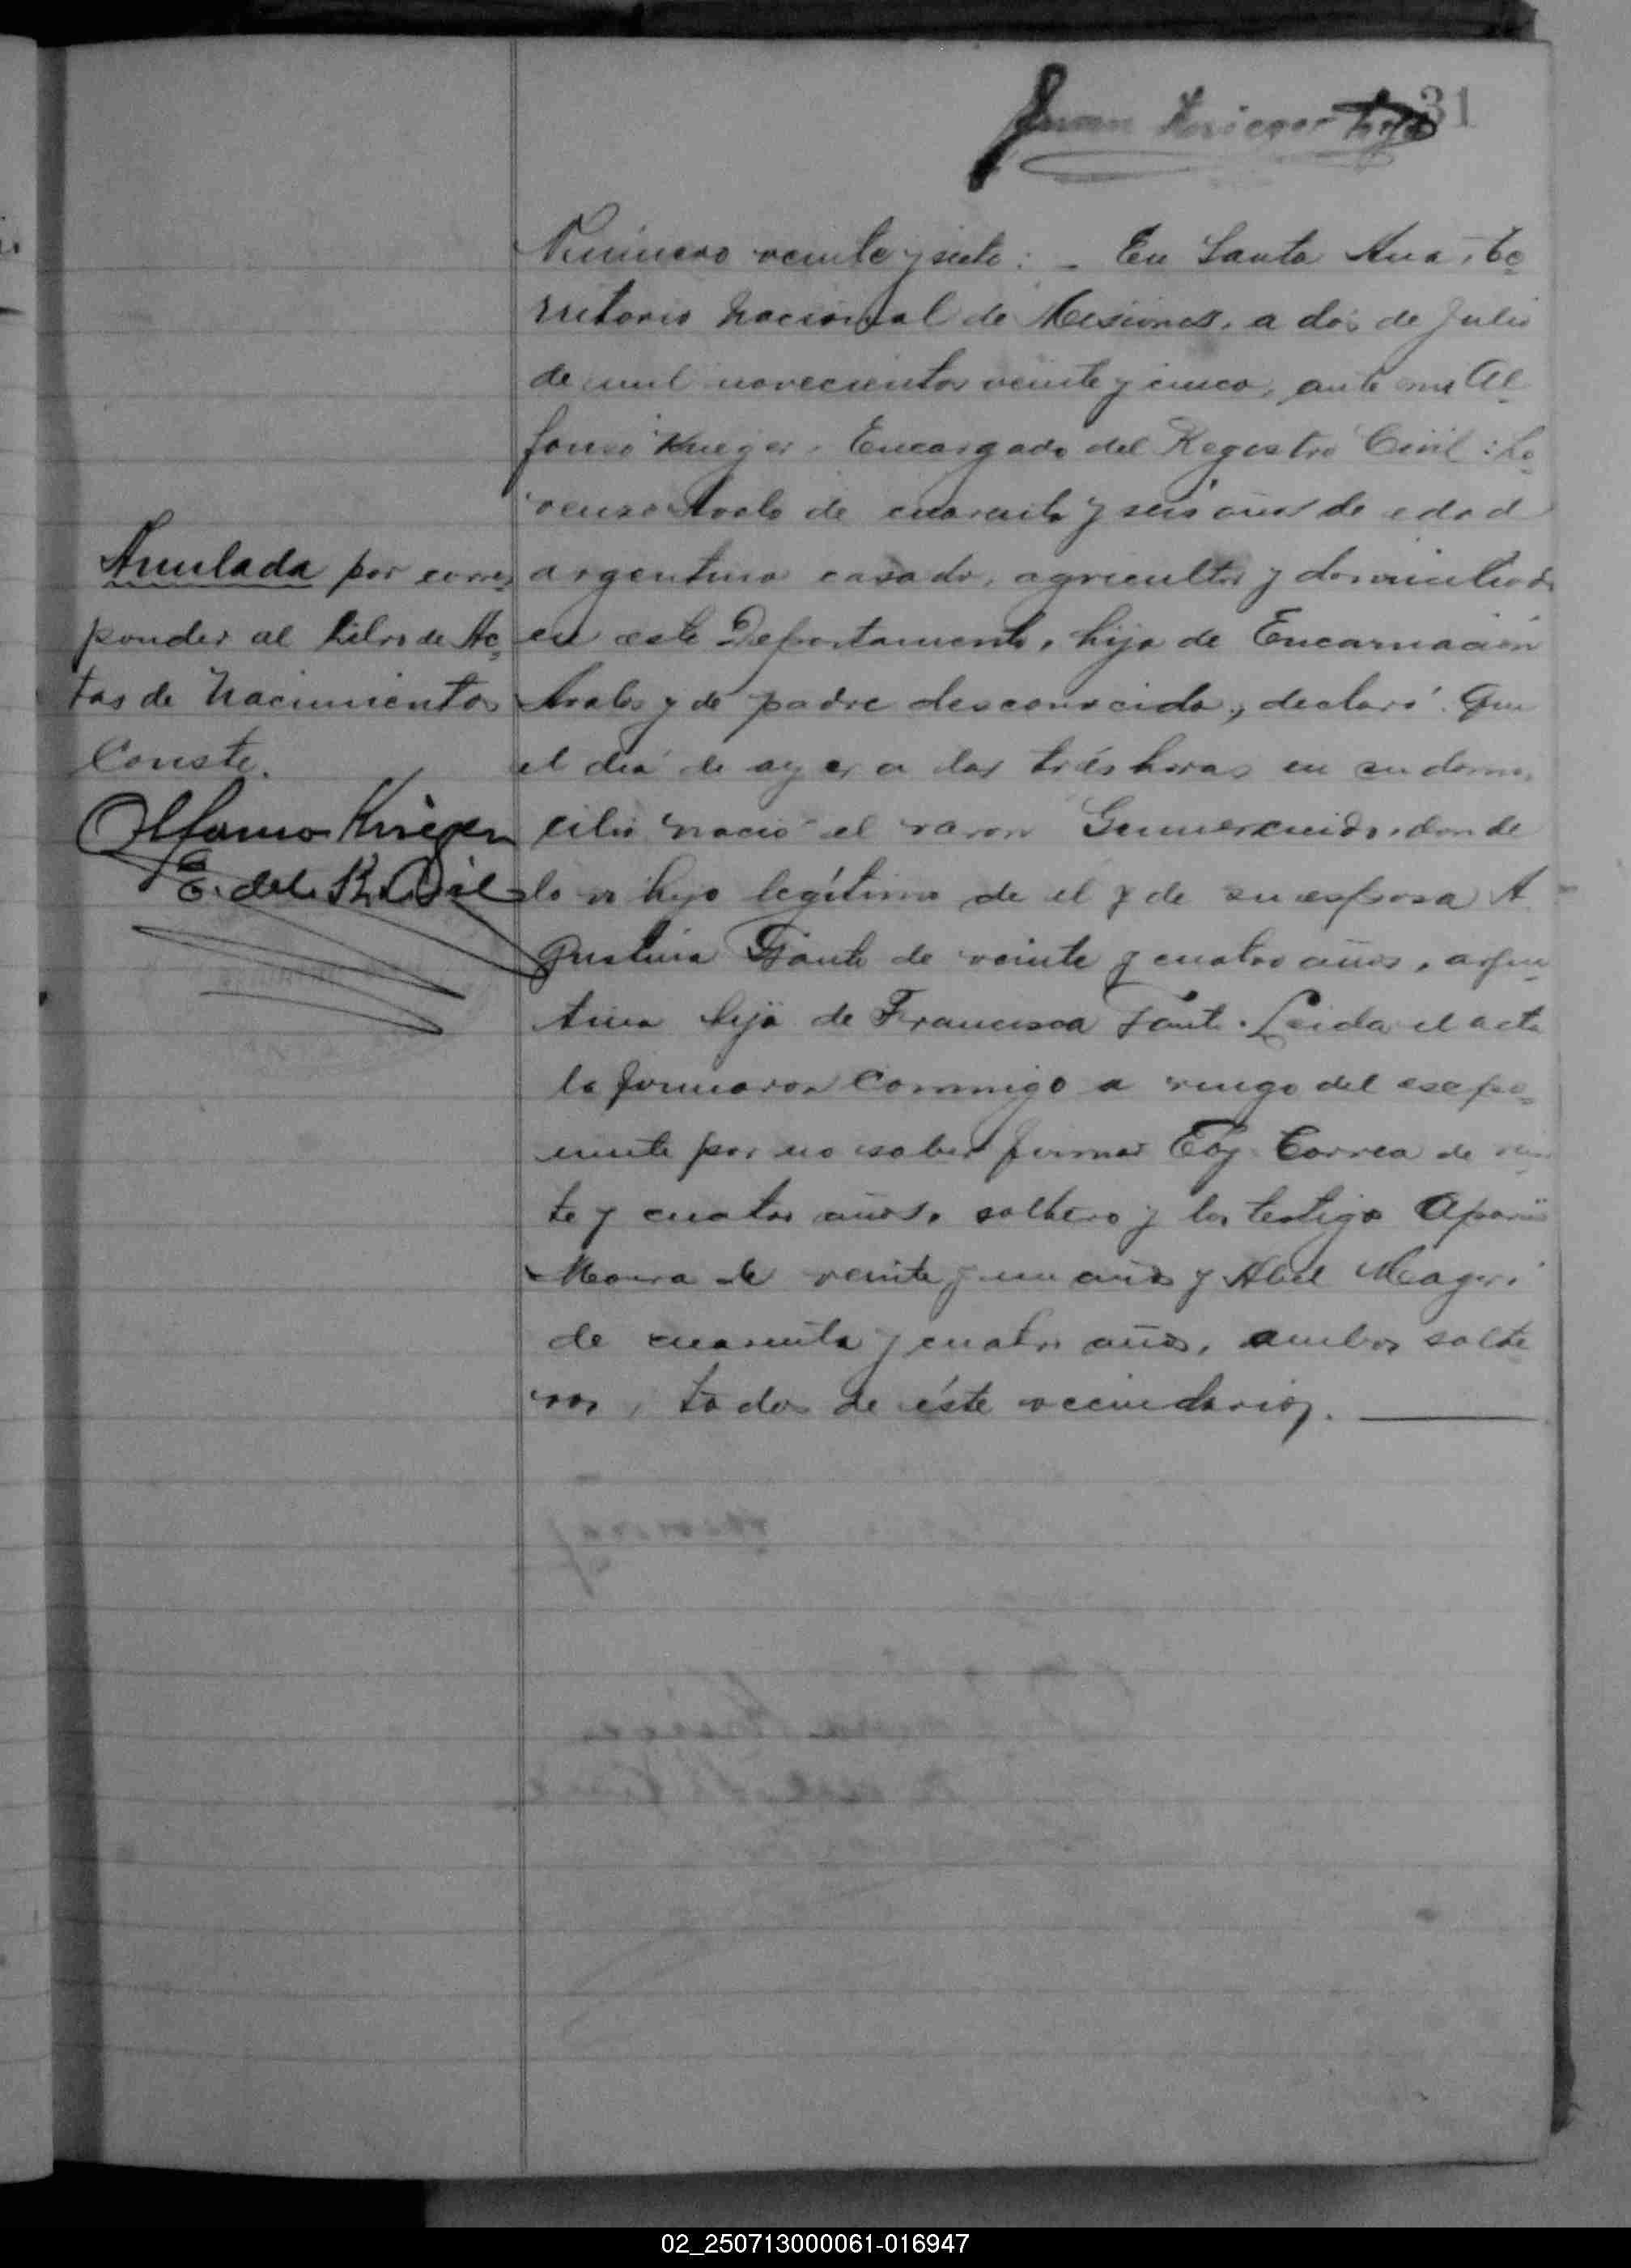 31
Juan Krieger hijo
Número veinte y siete: _ En Santa Ana, Te=
rritorio Nacional de Misiones, a dos de Julio
de mil novecientos veinte y cinco, ante mi Al=
fonso Krieger, Encargado del Registro Civil: Lo=
renzo de cuarenta y seis años de edad
argentino casado, agricultor y domiciliado
en este Departamento, hijo de Encarnación
y de padre desconocido, declaró: Que
el dia de ayer a las trés horas en su domi=
cilio nació el varon Gumercindo, dando
lo n hijo legítimo de el y de su esposa A
gustina Fante de veinte y cuatro años, argen=
tina hija de Francisca Fante. Leida el acta
la firmaron conmigo a ruego del expo=
nente por no saber firmar Eloy Correa de vein
te y cuatro años, soltero y los testigo Aparicio
Moura de veinte y un años y Abel
de cuarenta y cuatro años, ambos solte
ros, todos de éste vecindario.
Anulada por corres=
ponder al Libro de Ac=
tas de Nacimientos
Conste.
Alfonso Krieger
E. del R. Civil
02_250713000061-016947